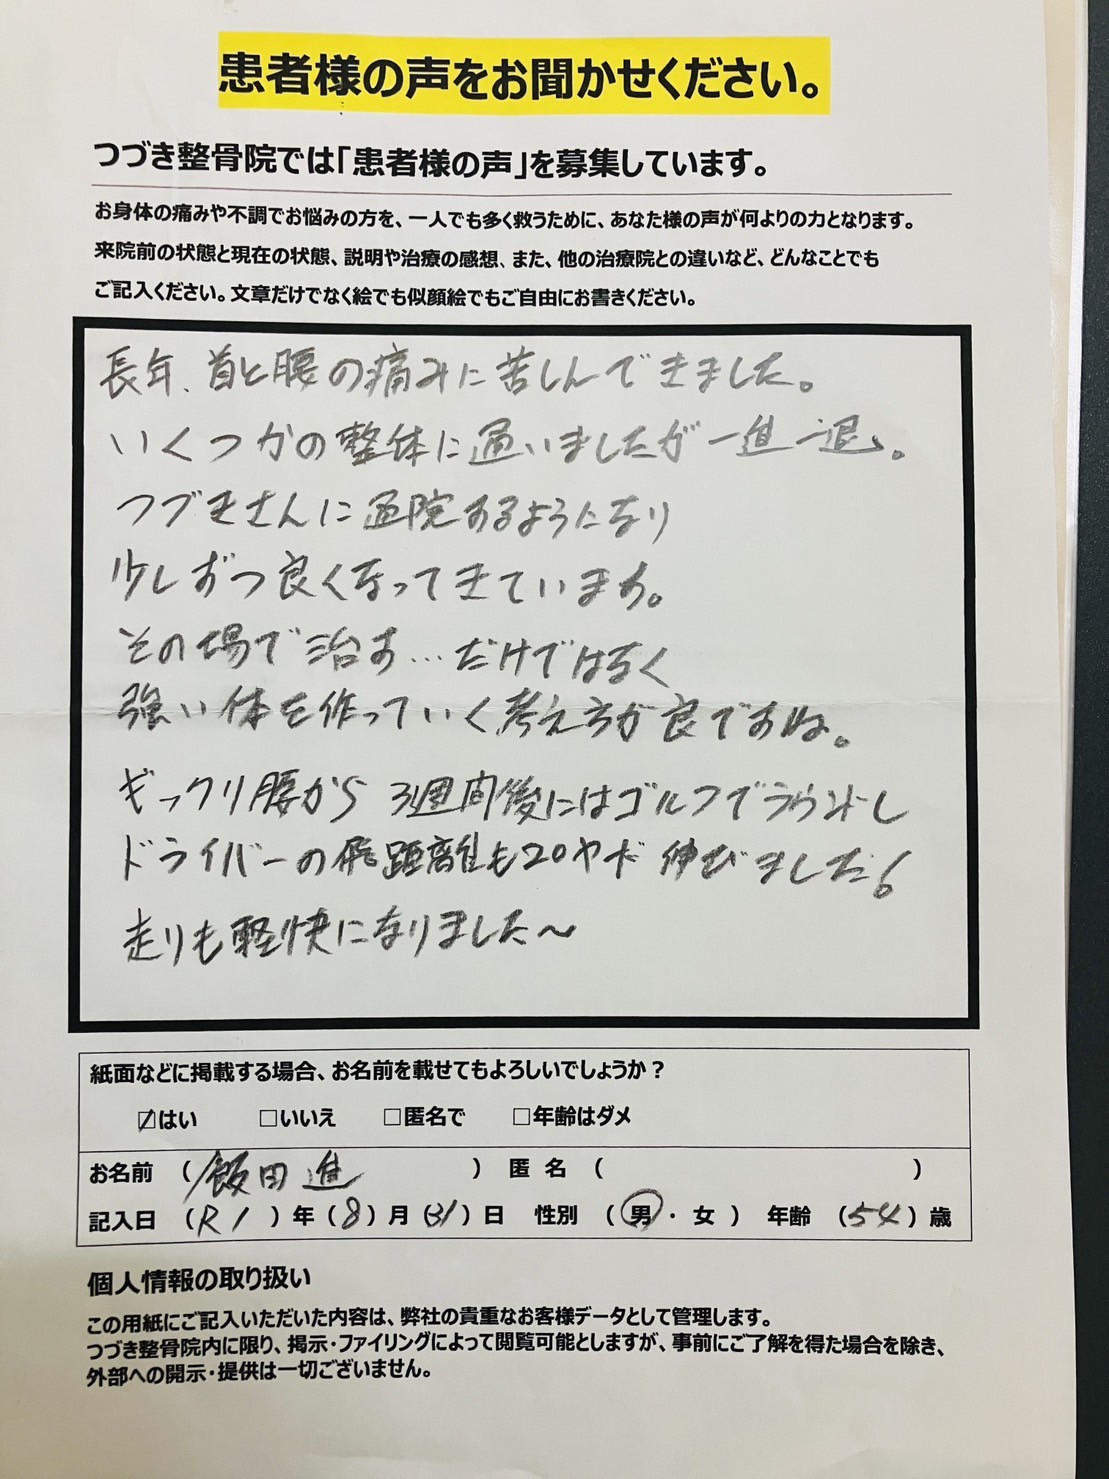 患者様の声をお聞かせください。
つづき整骨院では「患者様の声」を募集しています。
お身体の痛みや不調でお悩みの方を、一人でも多く救うために、あなた様の声が何よりの力となります。
来院前の状態と現在の状態、説明や治療の感想、また、他の治療院との違いなど、どんなことでも
ご記入ください。文章だけでなく絵でも似顔絵でもご自由にお書きください。
長年、首と腰の痛みに苦しんできました。
いくつかの整体に通いましたが一進一退。
つづきさんに通院するようになり
少しずつ良くなってきています。
その場で治す…だけではなく
強い体を作っていく考え方が良ですね。
ギックリ腰から3週間後にはゴルフでラウンドし
ドライバーの飛距離も20ヤード伸びました!
走りも軽快になりました〜
紙面などに掲載する場合、お名前を載せてもよろしいでしょうか?
☑はい □いいえ □匿名で □年齢はダメ
お名前 (飯田進) 匿名 ( )
記入日 (R1)年(8)月(31)日 性別 (男・女) 年齢 (54)歳
個人情報の取り扱い
この用紙にご記入いただいた内容は、弊社の貴重なお客様データとして管理します。
つづき整骨院内に限り、掲示・ファイリングによって閲覧可能としますが、事前にご了解を得た場合を除き、
外部への開示・提供は一切ございません。